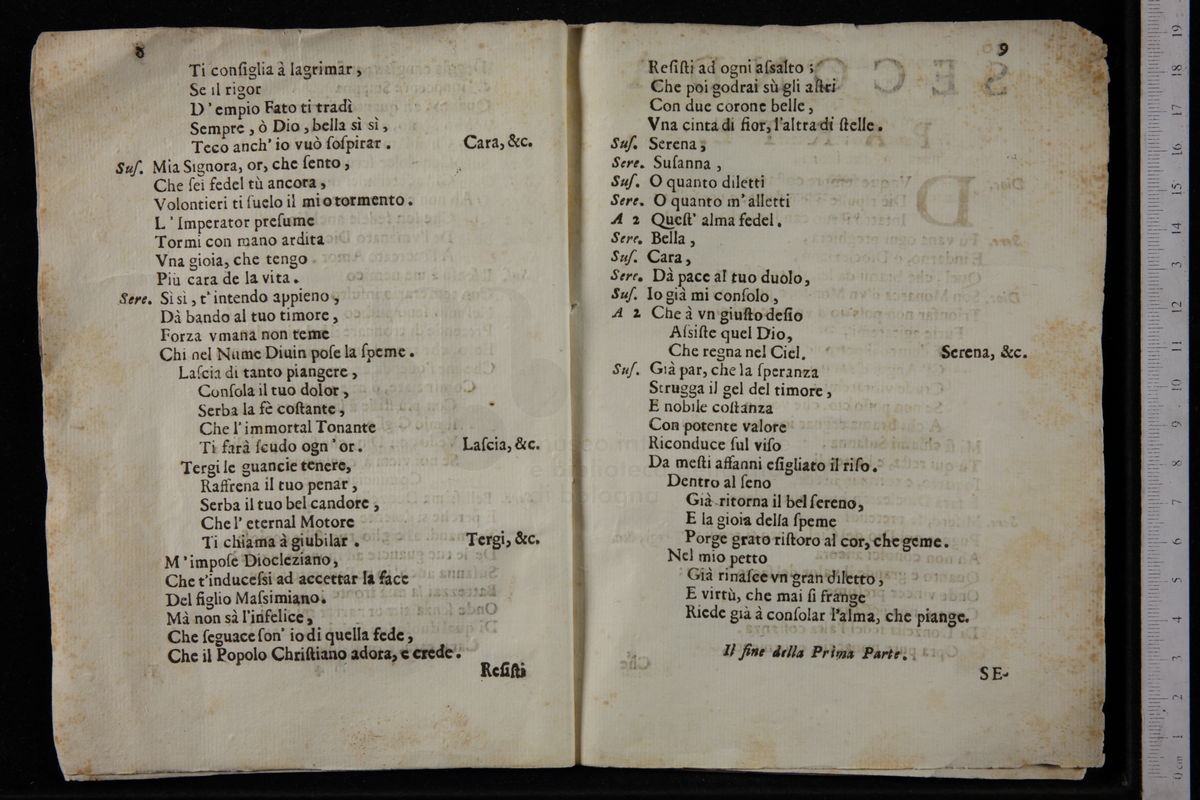 8
Ti conſiglia à lagrimar,
Se il rigor
D' empio Fato ti tradì
Sempre, ò Dio, bella sì sì,
Teco anch' io vuò ſoſpirar. Cara, &c.
Suſ. Mia Signora, or, che ſento,
Che ſei fedel tù ancora,
Volontieri ti ſuelo il mio tormento.
L' Imperator preſume
Tormi con mano ardita
Vna gioia, che tengo
Più cara de la vita.
Sere. Sì sì, t' intendo appieno,
Dà bando al tuo timore,
Forza vmana non teme
Chi nel Nume Diuin poſe la ſpeme.
Laſcia di tanto piangere,
Conſola il tuo dolor,
Serba la fè coſtante,
Che l' immortal Tonante
Ti farà ſcudo ogn' or. Laſcia, &c.
Tergi le guancie tenere,
Raffrena il tuo penar,
Serba il tuo bel candore,
Che l' eternal Motore
Ti chiama à giubilar. Tergi, &c.
M' impoſe Diocleziano,
Che t'induceſsi ad accettar la face
Del figlio Maſsimiano.
Mà non sà l'infelice,
Che ſeguace ſon' io di quella fede,
Che il Popolo Chriſtiano adora, e crede.
Reſiſti
9
Reſiſti ad ogni aſsalto;
Che poi godrai sù gli aſtri
Con due corone belle,
Vna cinta di fior, l'altra di ſtelle.
Suſ. Serena,
Sere. Suſanna,
Suſ. O quanto diletti
Sere. O quanto m' alletti
A 2 Queſt' alma fedel.
Sere. Bella,
Suſ. Cara,
Sere. Dà pace al tuo duolo,
Suſ. Io già mi conſolo,
A 2 Che à vn giuſto deſio
Aſsiſte quel Dio,
Che regna nel Ciel. Serena, &c.
Suſ. Già par, che la ſperanza
Strugga il gel del timore,
E nobile coſtanza
Con potente valore
Riconduce ſul viſo
Da meſti affanni eſigliato il riſo.
Dentro al ſeno
Già ritorna il bel ſereno,
E la gioia della ſpeme
Porge grato riſtoro al cor, che geme.
Nel mio petto
Già rinaſce vn gran diletto,
E virtù, che mai ſi frange
Riede già à conſolar l'alma, che piange.
Il fine della Prima Parte.
SE-